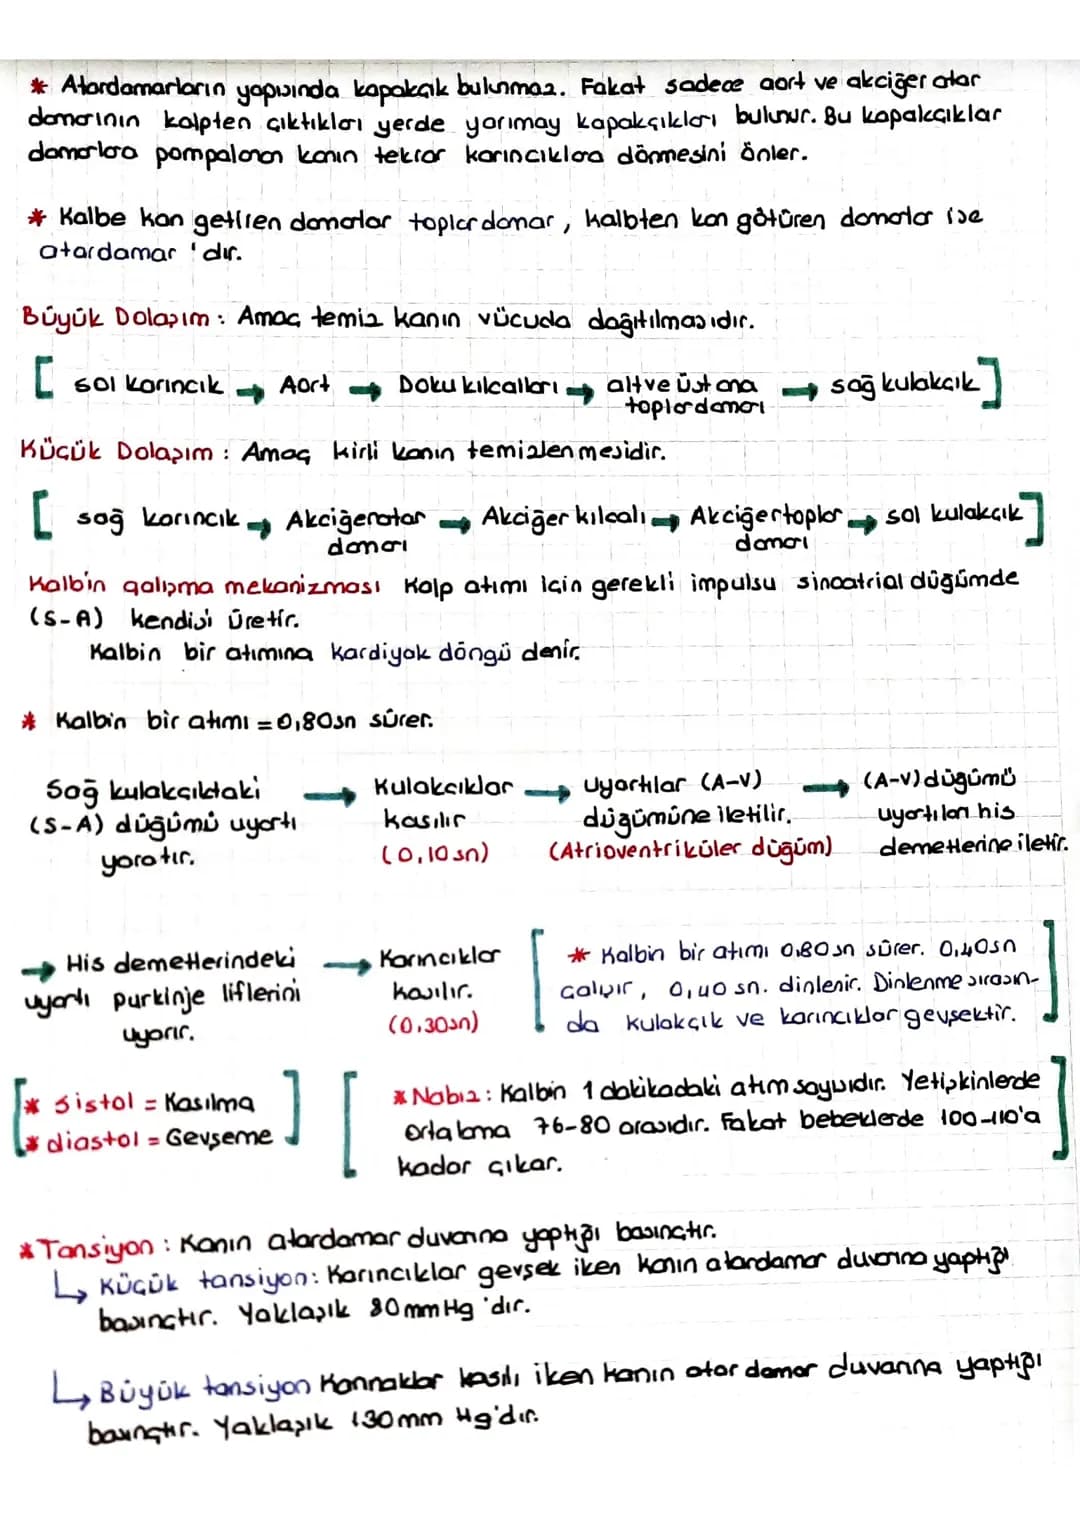 * Atardamarların yapısında kapakçık bulunmaz. Fakat sadece aort ve akciğer atar
damarının kalpten çıktıkları yerde yarımay kapakçıkları bulunur. Bu kapakçıklar
damarlara pompalanan kanın tekrar karıncıklara dönmesini önler.
* Kalbe kan getiren damarlar toplardamar, kalbten kan götüren damarlar ise
atardamar 'dır.
Büyük Dolaşım : Amaç temiz kanın vücuda dağıtılmasıdır.
[ sol karıncık → Aort → Doku kılcalları → alt ve üst ana toplardamarı → sağ kulakçık ]
Küçük Dolaşım : Amaç kirli kanın temizlenmesidir.
[ sağ karıncık → Akciğer atar damarı → Akciğer kılcalı → Akciğer toplar damarı → sol kulakçık ]
Kalbin çalışma mekanizması Kalp atımı için gerekli impulsu sinoatrial düğümde
(S-A) kendisi üretir.
Kalbin bir atımına kardiyak döngü denir.
* Kalbin bir atımı = 0,80sn sürer.
Sağ kulakçıktaki (S-A) düğümü uyartı yaratır. → Kulakcıklar kasılır (0,10 sn) → Uyartılar (A-V) düğümüne iletilir. (Atrioventriküler düğüm) → (A-V) düğümü uyartıları his demetlerine iletir.
→ His demetlerindeki uyartı purkinje liflerini uyarır. → Karıncıklar kasılır. (0,30sn)
[ * Kalbin bir atımı 0,80 sn sürer. 0,40sn
çalışır, 0,40 sn. dinlenir. Dinlenme sırasın-
da kulakçık ve karıncıklar gevşektir. ]
[ * Sistol = Kasılma
* diastol = Gevşeme ]
[ * Nabız : Kalbin 1 dakikadaki atım sayısıdır. Yetişkinlerde
ortalama 76-80 arasıdır. Fakat bebeklerde 100-110'a
kadar çıkar. ]
* Tansiyon : Kanın atardamar duvarına yaptığı basınçtır.
↳ Küçük tansiyon: Karıncıklar gevşek iken kanın atardamar duvarına yaptığı
basınçtır. Yaklaşık 80 mmHg 'dır.
↳ Büyük tansiyon kasılı iken kanın atar damar duvarına yaptığı
basınçtır. Yaklaşık 130 mm Hg'dır.